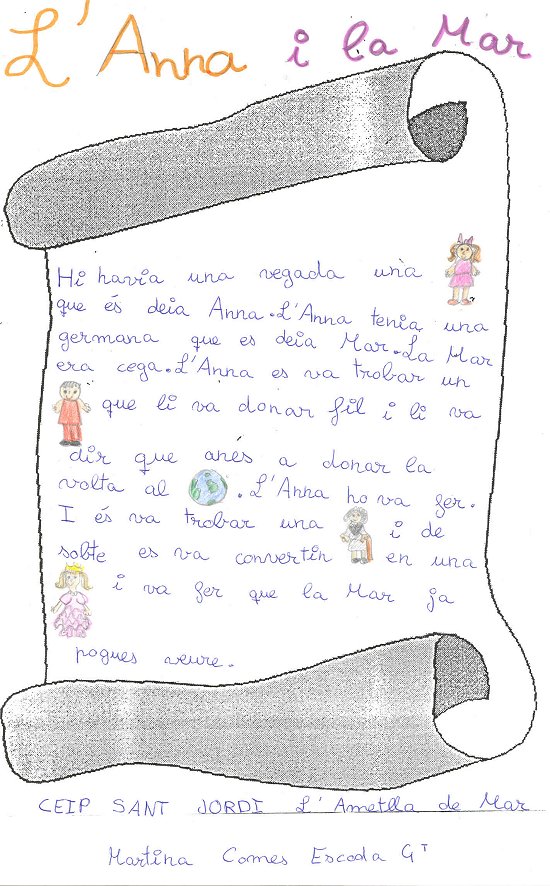 L'Anna i la Mar
Hi havia una vegada una
que és deia Anna.L'Anna tenia una
germana que es deia Mar.La Mar
era cega.L'Anna es va trobar un
que li va donar fil i li va
dir que anés a donar la
volta al . L'Anna ho va fer.
I és va trobar una i de
sobte es va convertin en una
i va fer que la Mar ja
pogues veure.
CEIP SANT JORDI L'Ametlla de Mar
Martina Comes Escoda